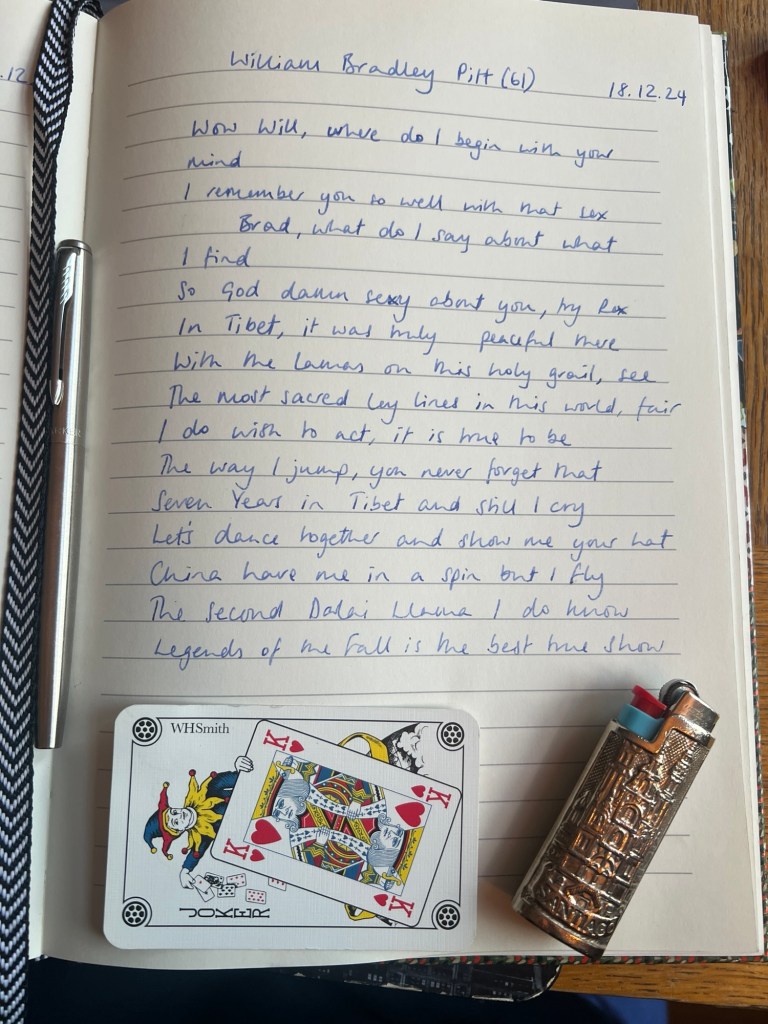 .12
William Bradley Pitt (61)
18.12.24
Wow Will, where do I begin with your
mind
I remember you so well with that sex
Brad, what do I say about what
I find
So God damn sexy about you, try Rex
In Tibet, it was truly peaceful there
With the Lamas on this holy grail, see
The most sacred ley lines in this world, fair
I do wish to act, it is true to be
The way I jump, you never forget that
Seven Years in Tibet and still I cry
Let's dance together and show me your hat
China have me in a spin but I fly
The second Dalai Llama I do know
Legends of the Fall is the best true show
WHSmith
K
K
K
K
JOKER
SANTIAGO